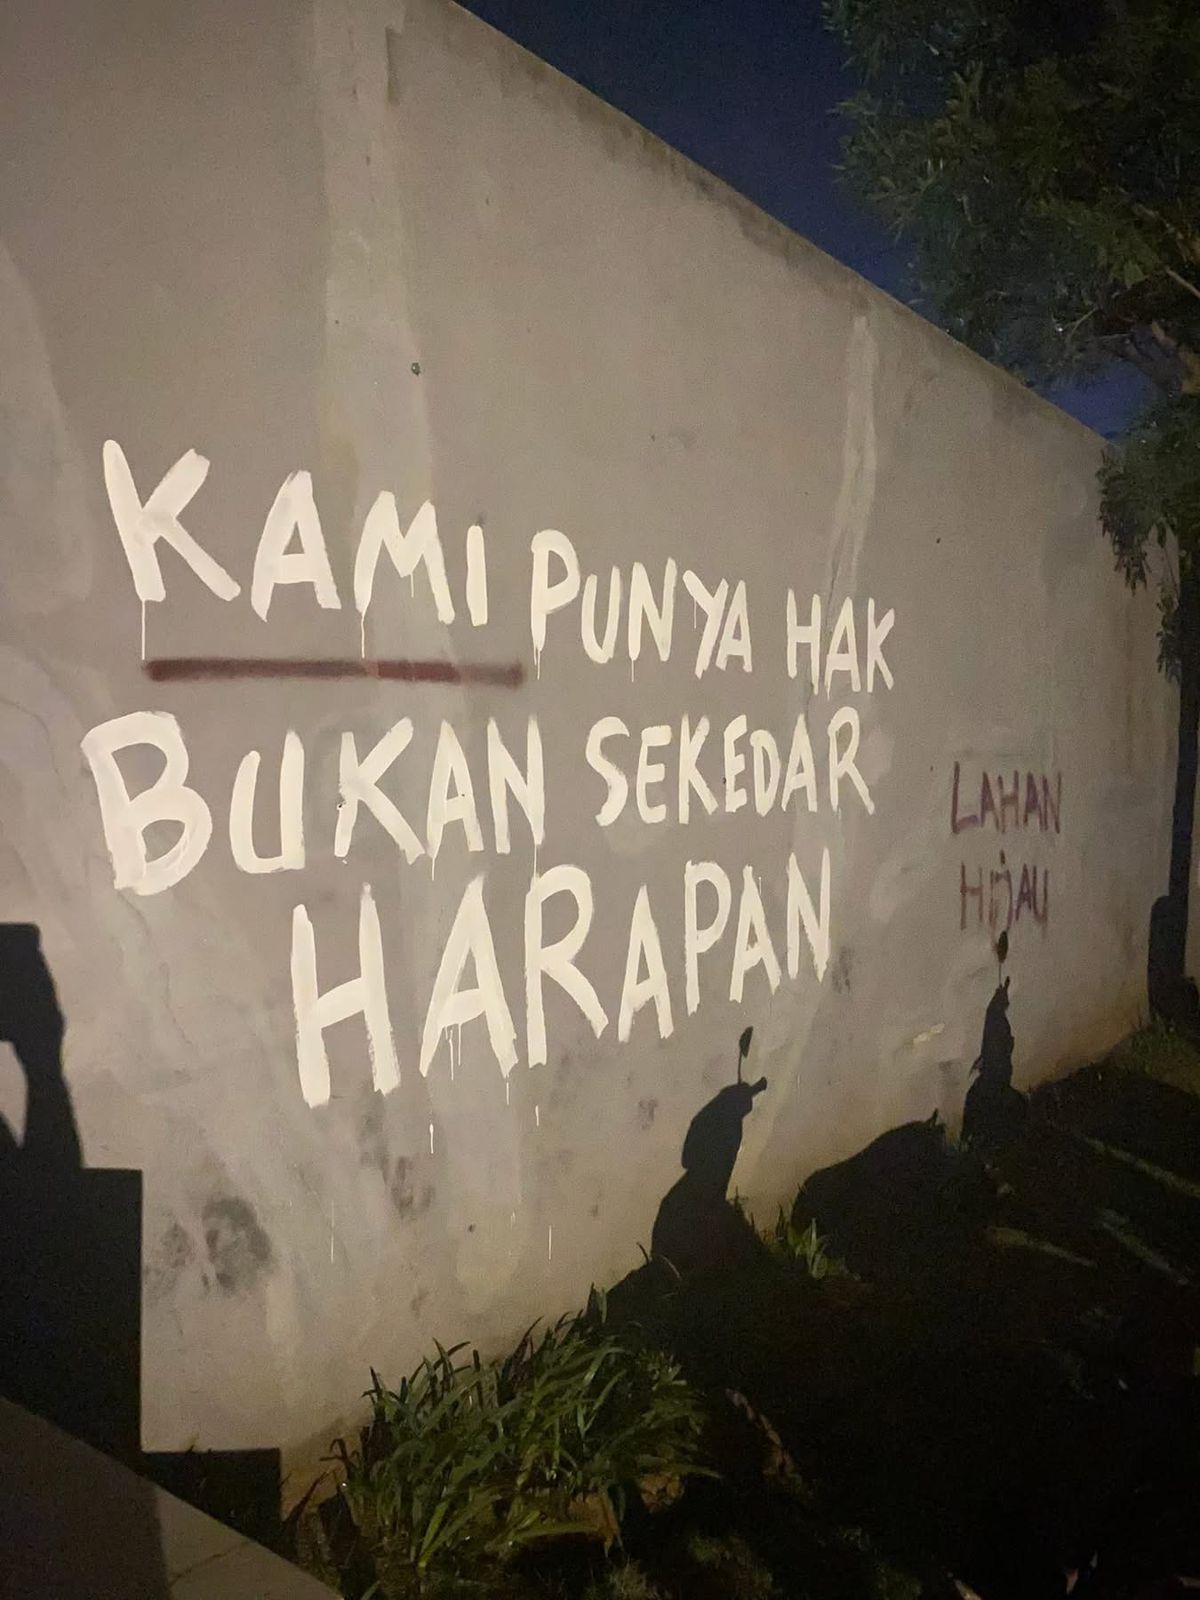 KAMI PUNYA HAK
BUKAN SEKEDAR
HARAPAN
LAHAN
HIJAU